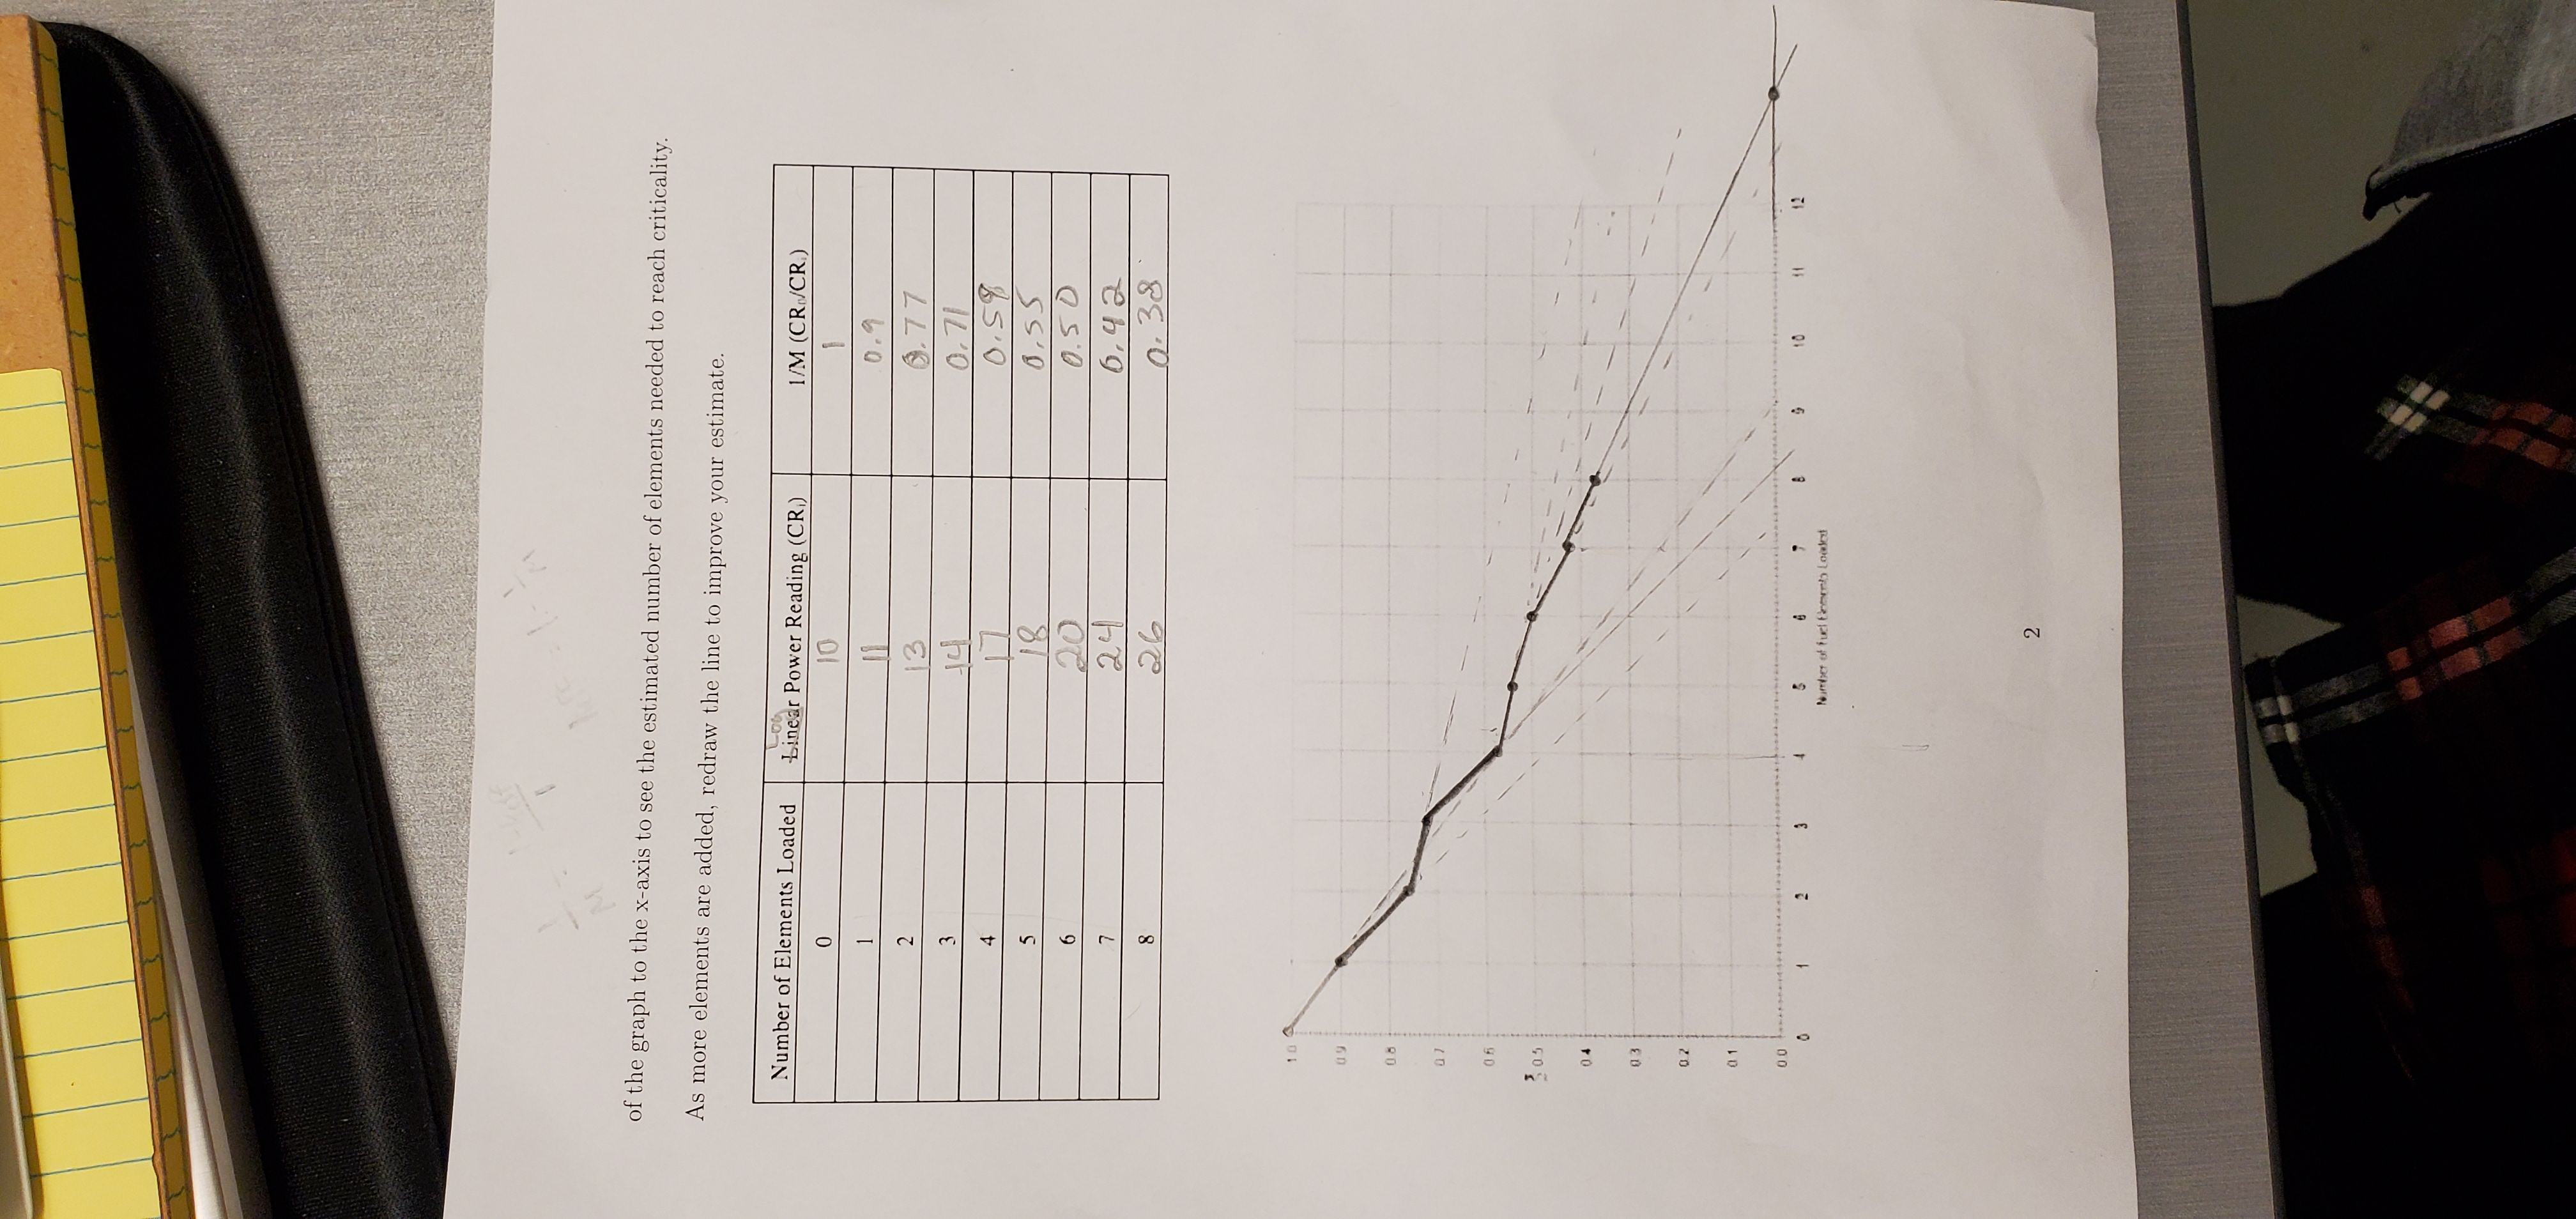 1/M = 1-keff/1 keff = 1 - 1/M
of the graph to the x-axis to see the estimated number of elements needed to reach criticality.
As more elements are added, redraw the line to improve your estimate.
Log
Number of Elements Loaded Linear Power Reading (CRᵢ) 1/M (CR₀/CRᵢ)
0 10 1
1 11 0.9
2 13 0.77
3 14 0.71
4 17 0.58
5 18 0.55
6 20 0.50
7 24 0.42
8 26 0.38
1.0
0.9
0.8
0.7
0.6
0.5
0.4
0.3
0.2
0.1
0.0
0 1 2 3 4 5 6 7 8 9 10 11 12
Number of Fuel Elements Loaded
2